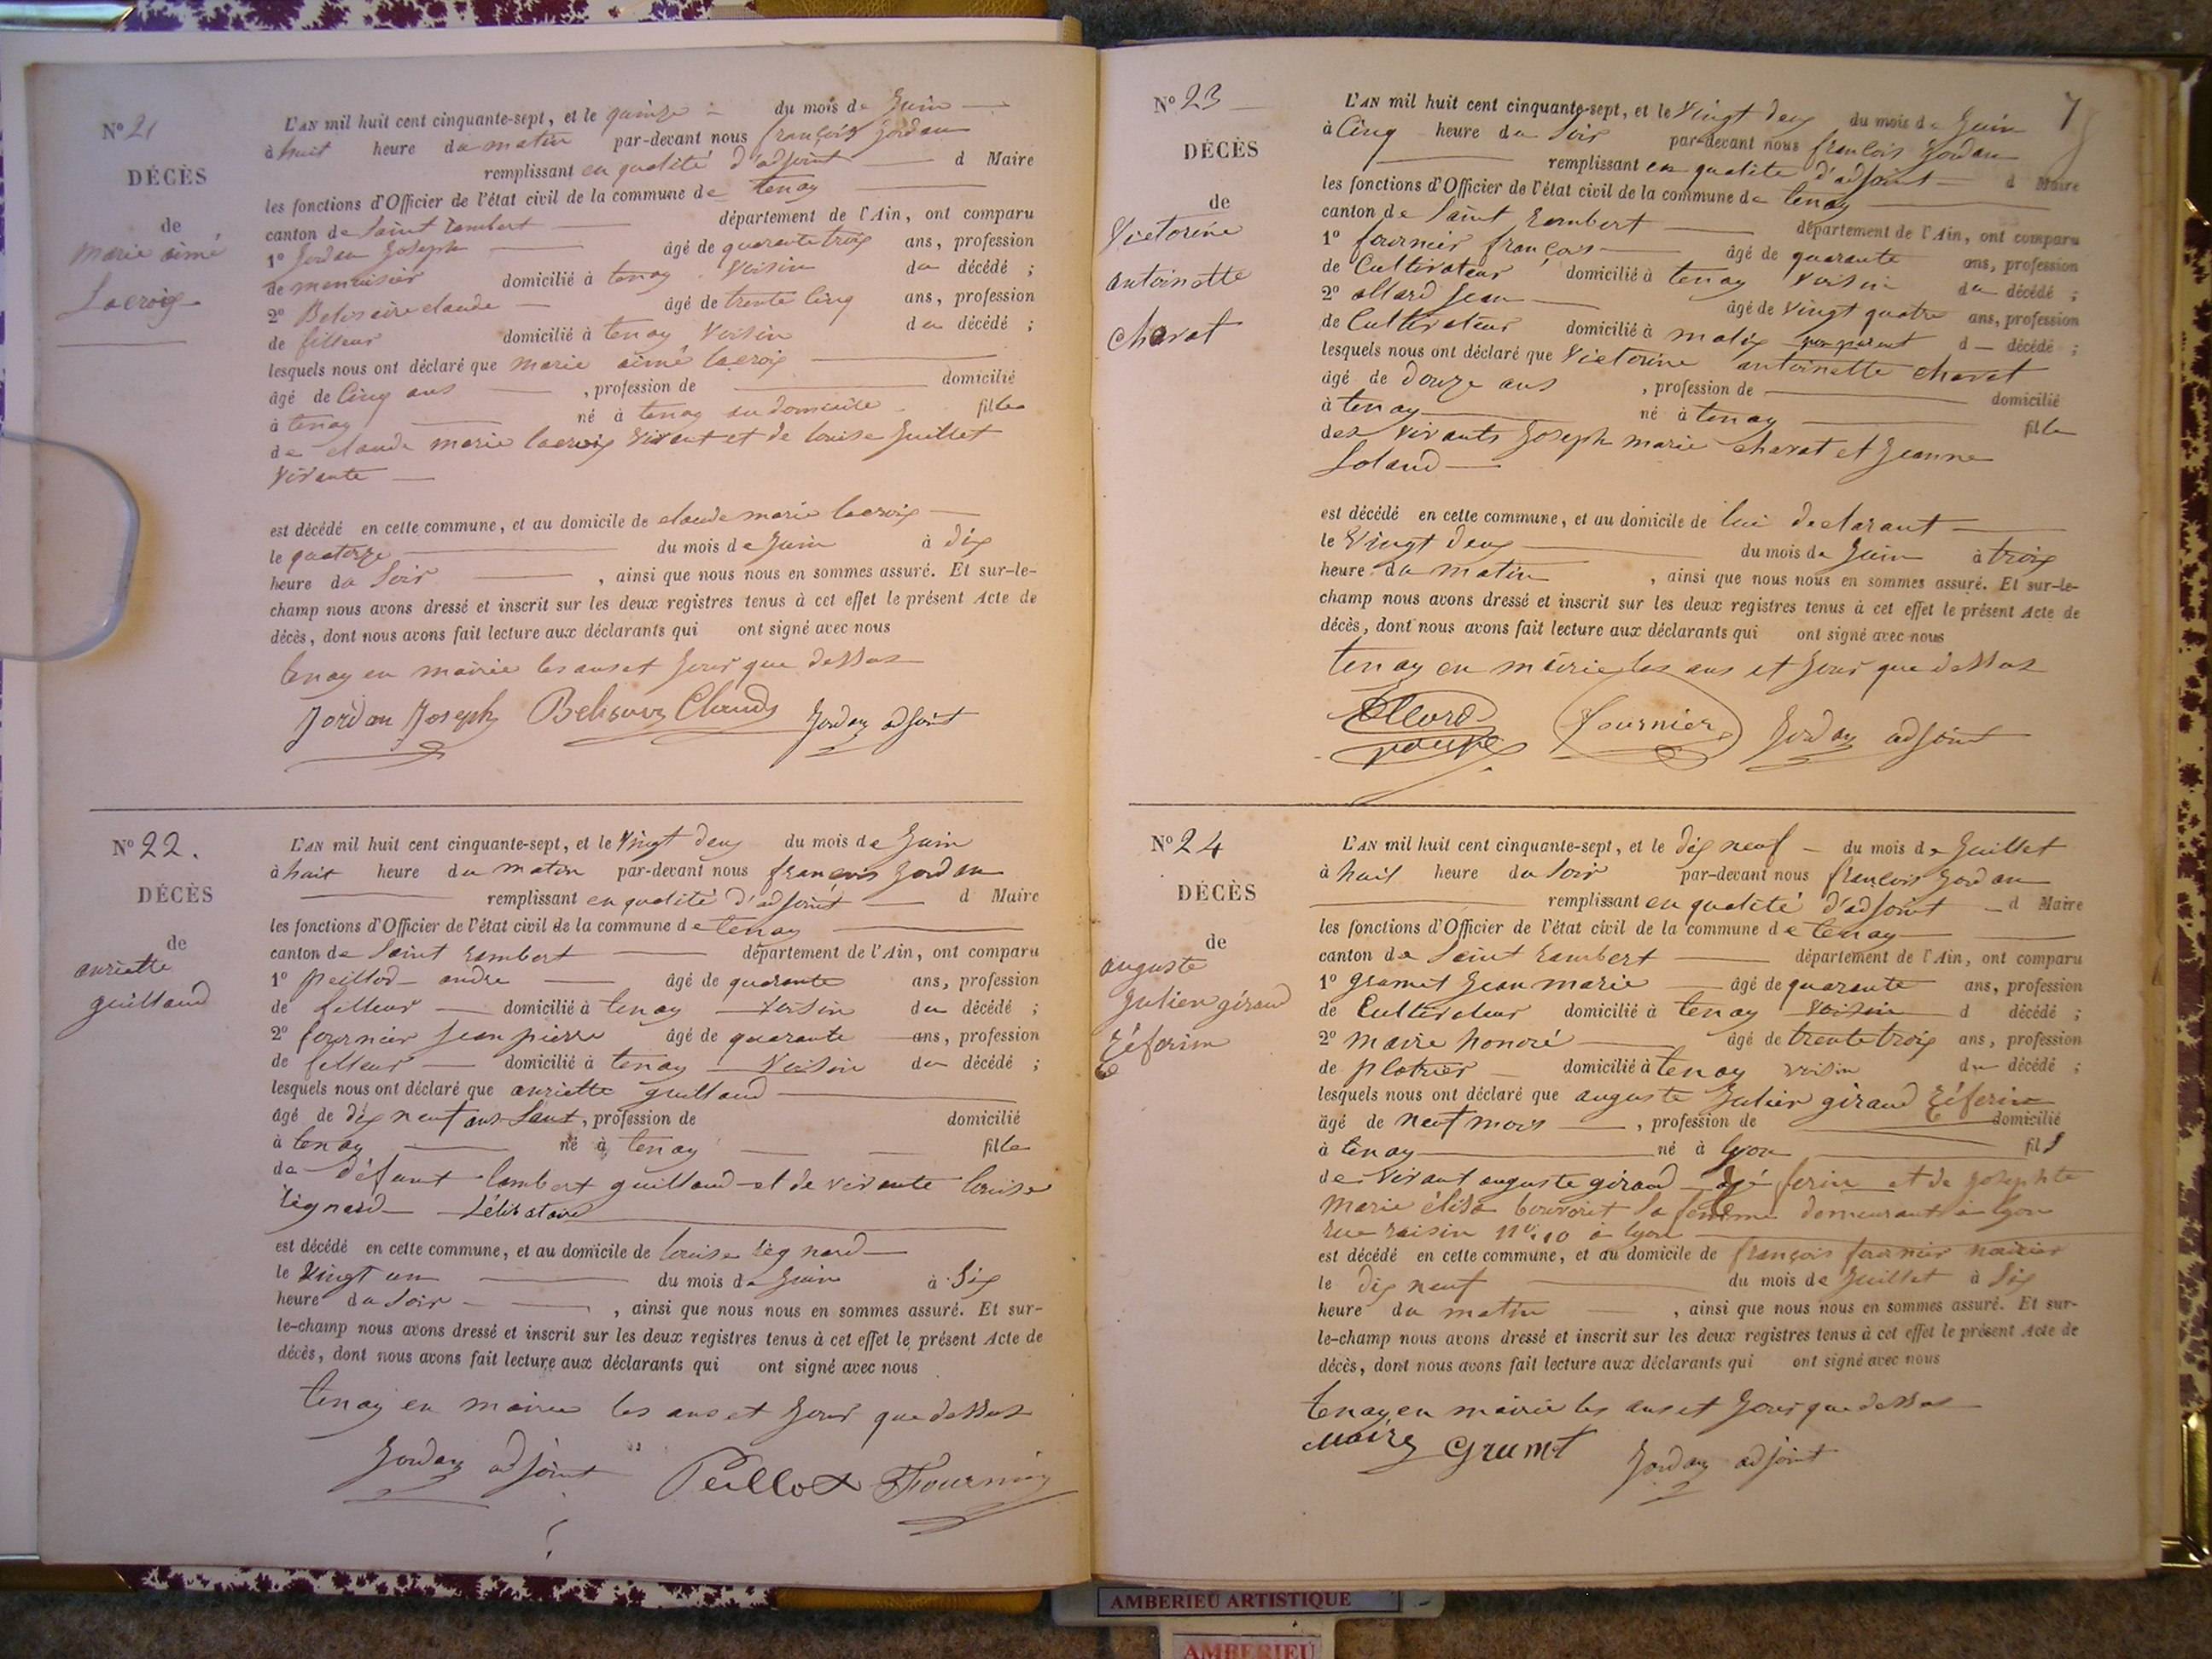 N° 21
DÉCÈS
de
marie aimé
Lacroix
L'AN mil huit cent cinquante-sept, et le quinze du mois de Juin
à huit heure du matin par-devant nous françois Jordan
remplissant en qualité d'adjoint d Maire
les fonctions d'Officier de l'état civil de la commune de tenay
canton de Saint rambert département de l'Ain, ont comparu
1° Jordan Joseph âgé de quarante trois ans, profession
de menuisier domicilié à tenay Voisin du décédé ;
2° Belissire claude âgé de trente cinq ans, profession
de filleur domicilié à tenay Voisin du décédé ;
lesquels nous ont déclaré que marie aimé lacroix
âgé de cinq ans , profession de domicilié
à tenay né à tenay au domicile fille
de claude marie lacroix Vivant et de louise Juillet
Vivante
est décédé en cette commune, et au domicile de claude marie lacroix
le quatorze du mois de Juin à dix
heure du Soir , ainsi que nous nous en sommes assuré. Et sur-le-
champ nous avons dressé et inscrit sur les deux registres tenus à cet effet le présent Acte de
décès, dont nous avons fait lecture aux déclarants qui ont signé avec nous
tenay en mairie les ans et Jour que dessus
Jordan Joseph Claude Jordan adjoint
N° 22.
DÉCÈS
de
anriette
guilland
L'AN mil huit cent cinquante-sept, et le Vingt deux du mois de Juin
à huit heure du matin par-devant nous françois Jordan
remplissant en qualité d'adjoint d Maire
les fonctions d'Officier de l'état civil de la commune de tenay
canton de Saint rambert département de l'Ain, ont comparu
1° peillod andre âgé de quarante ans, profession
de filleur domicilié à tenay Voisin du décédé ;
2° fournier Jean pierre âgé de quarante ans, profession
de filleur domicilié à tenay Voisin du décédé ;
lesquels nous ont déclaré que anriette guilland
âgé de dix neuf ans Sans , profession de domicilié
à tenay né à tenay fille
de défunt lambert guilland et de vivante louise
Célibataire
est décédé en cette commune, et au domicile de louise
le Vingt un du mois de Juin à Six
heure du Soir , ainsi que nous nous en sommes assuré. Et sur-
le-champ nous avons dressé et inscrit sur les deux registres tenus à cet effet le présent Acte de
décès, dont nous avons fait lecture aux déclarants qui ont signé avec nous
tenay en mairie les ans et Jour que dessus
Jordan adjoint Peillod Fournier
7
N° 23
DÉCÈS
de
Victorine
antoinette
Charat
L'AN mil huit cent cinquante-sept, et le Vingt deux du mois de Juin
à Cinq heure du Soir par-devant nous françois Jordan
remplissant en qualité d'adjoint d Maire
les fonctions d'Officier de l'état civil de la commune de tenay
canton de Saint rambert département de l'Ain, ont comparu
1° fournier françois âgé de quarante ans, profession
de Cultivateur domicilié à tenay Voisin du décédé ;
2° allard Jean âgé de Vingt quatre ans, profession
de Cultivateur domicilié à non parent d décédé ;
lesquels nous ont déclaré que Victorine antoinette charat
âgé de douze ans , profession de domicilié
à tenay né à tenay fille
des Vivants Joseph marie charat et Jeanne
est décédé en cette commune, et au domicile de lui declarant
le Vingt deux du mois de Juin à trois
heure du matin , ainsi que nous nous en sommes assuré. Et sur-le-
champ nous avons dressé et inscrit sur les deux registres tenus à cet effet le présent Acte de
décès, dont nous avons fait lecture aux déclarants qui ont signé avec nous
tenay en mairie les ans et Jour que dessus
Allard Fournier Jordan adjoint
N° 24
DÉCÈS
de
auguste
Julien giraud
Zéferin
L'AN mil huit cent cinquante-sept, et le dix neuf du mois de Juillet
à huit heure du Soir par-devant nous françois Jordan
remplissant en qualité d'adjoint d Maire
les fonctions d'Officier de l'état civil de la commune de tenay
canton de Saint rambert département de l'Ain, ont comparu
1° gramet Jean marie âgé de quarante ans, profession
de Cultivateur domicilié à tenay Voisin d décédé ;
2° maire honoré âgé de trente trois ans, profession
de platrier domicilié à tenay voisin du décédé ;
lesquels nous ont déclaré que auguste Julien giraud Zéferin
âgé de neuf mois , profession de domicilié
à tenay né à lyon fils
de Vivant auguste giraud et de Josephte
Marie élisa la femme demeurant à lyon
rue raisin n° 10 à lyon
est décédé en cette commune, et au domicile de françois fournier
le dix neuf du mois de Juillet à Six
heure du matin , ainsi que nous nous en sommes assuré. Et sur-
le-champ nous avons dressé et inscrit sur les deux registres tenus à cet effet le présent Acte de
décès, dont nous avons fait lecture aux déclarants qui ont signé avec nous
tenay en mairie les ans et Jour que dessus
Maire Grumt Jordan adjoint
AMBERIEU ARTISTIQUE
AMBERIEU